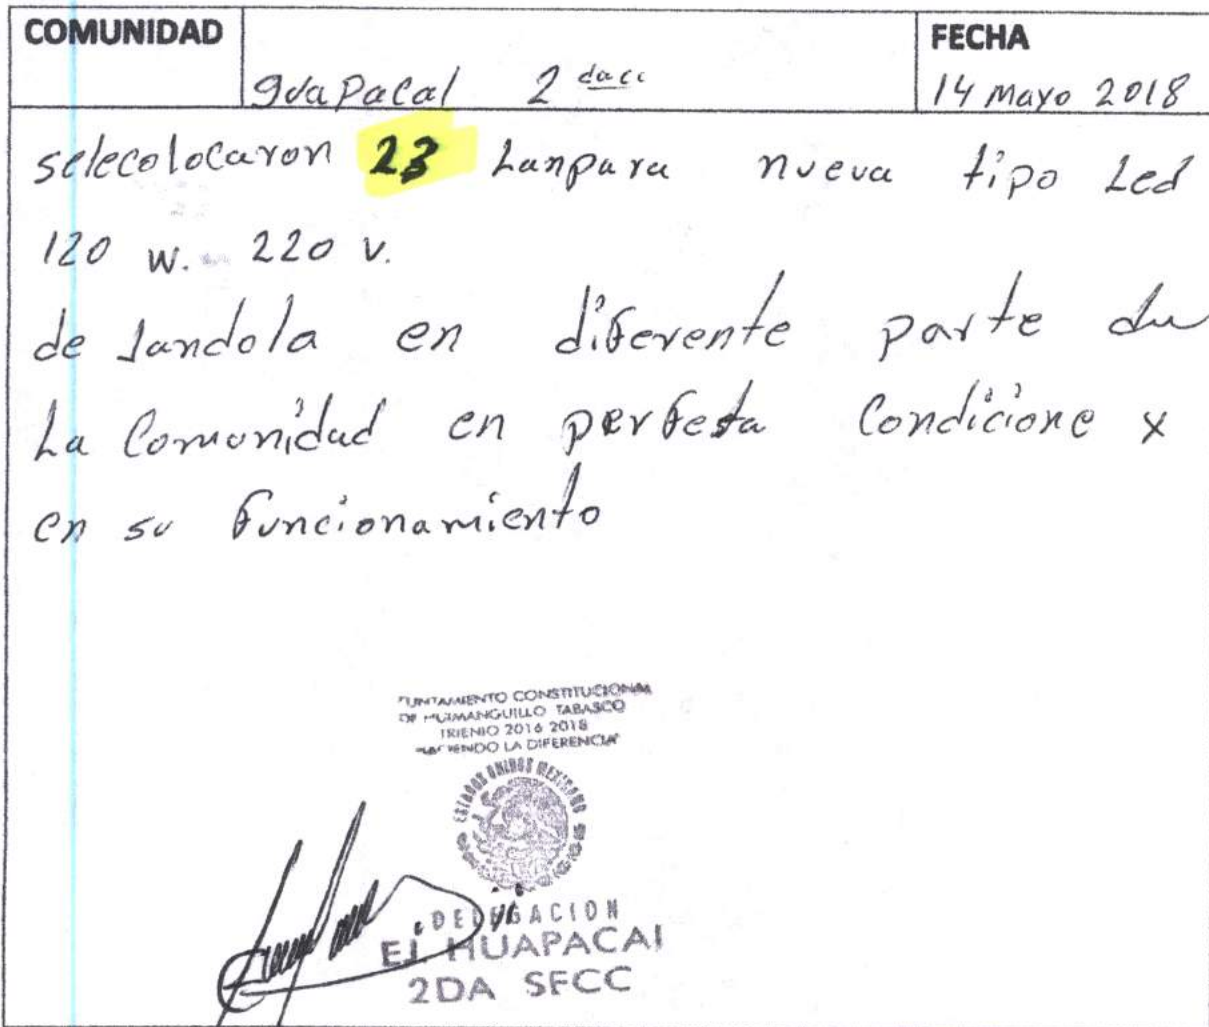 COMUNIDAD
guapacal 2 dacc
FECHA
14 Mayo 2018
selecolocaron 23 Lanpara nueva tipo Led
120 w. 220 v.
de Jandola en diferente parte de
La Comunidad en perfesta Condicione x
en su funcionamiento
UNTAMIENTO CONSTITUCIONAL
DE HUIMANGUILLO TABASCO
TRIENIO 2016 2018
"HACIENDO LA DIFERENCIA"
ESTADOS UNIDOS MEXICANO
DELEGACION
EL HUAPACAL
2DA SECC